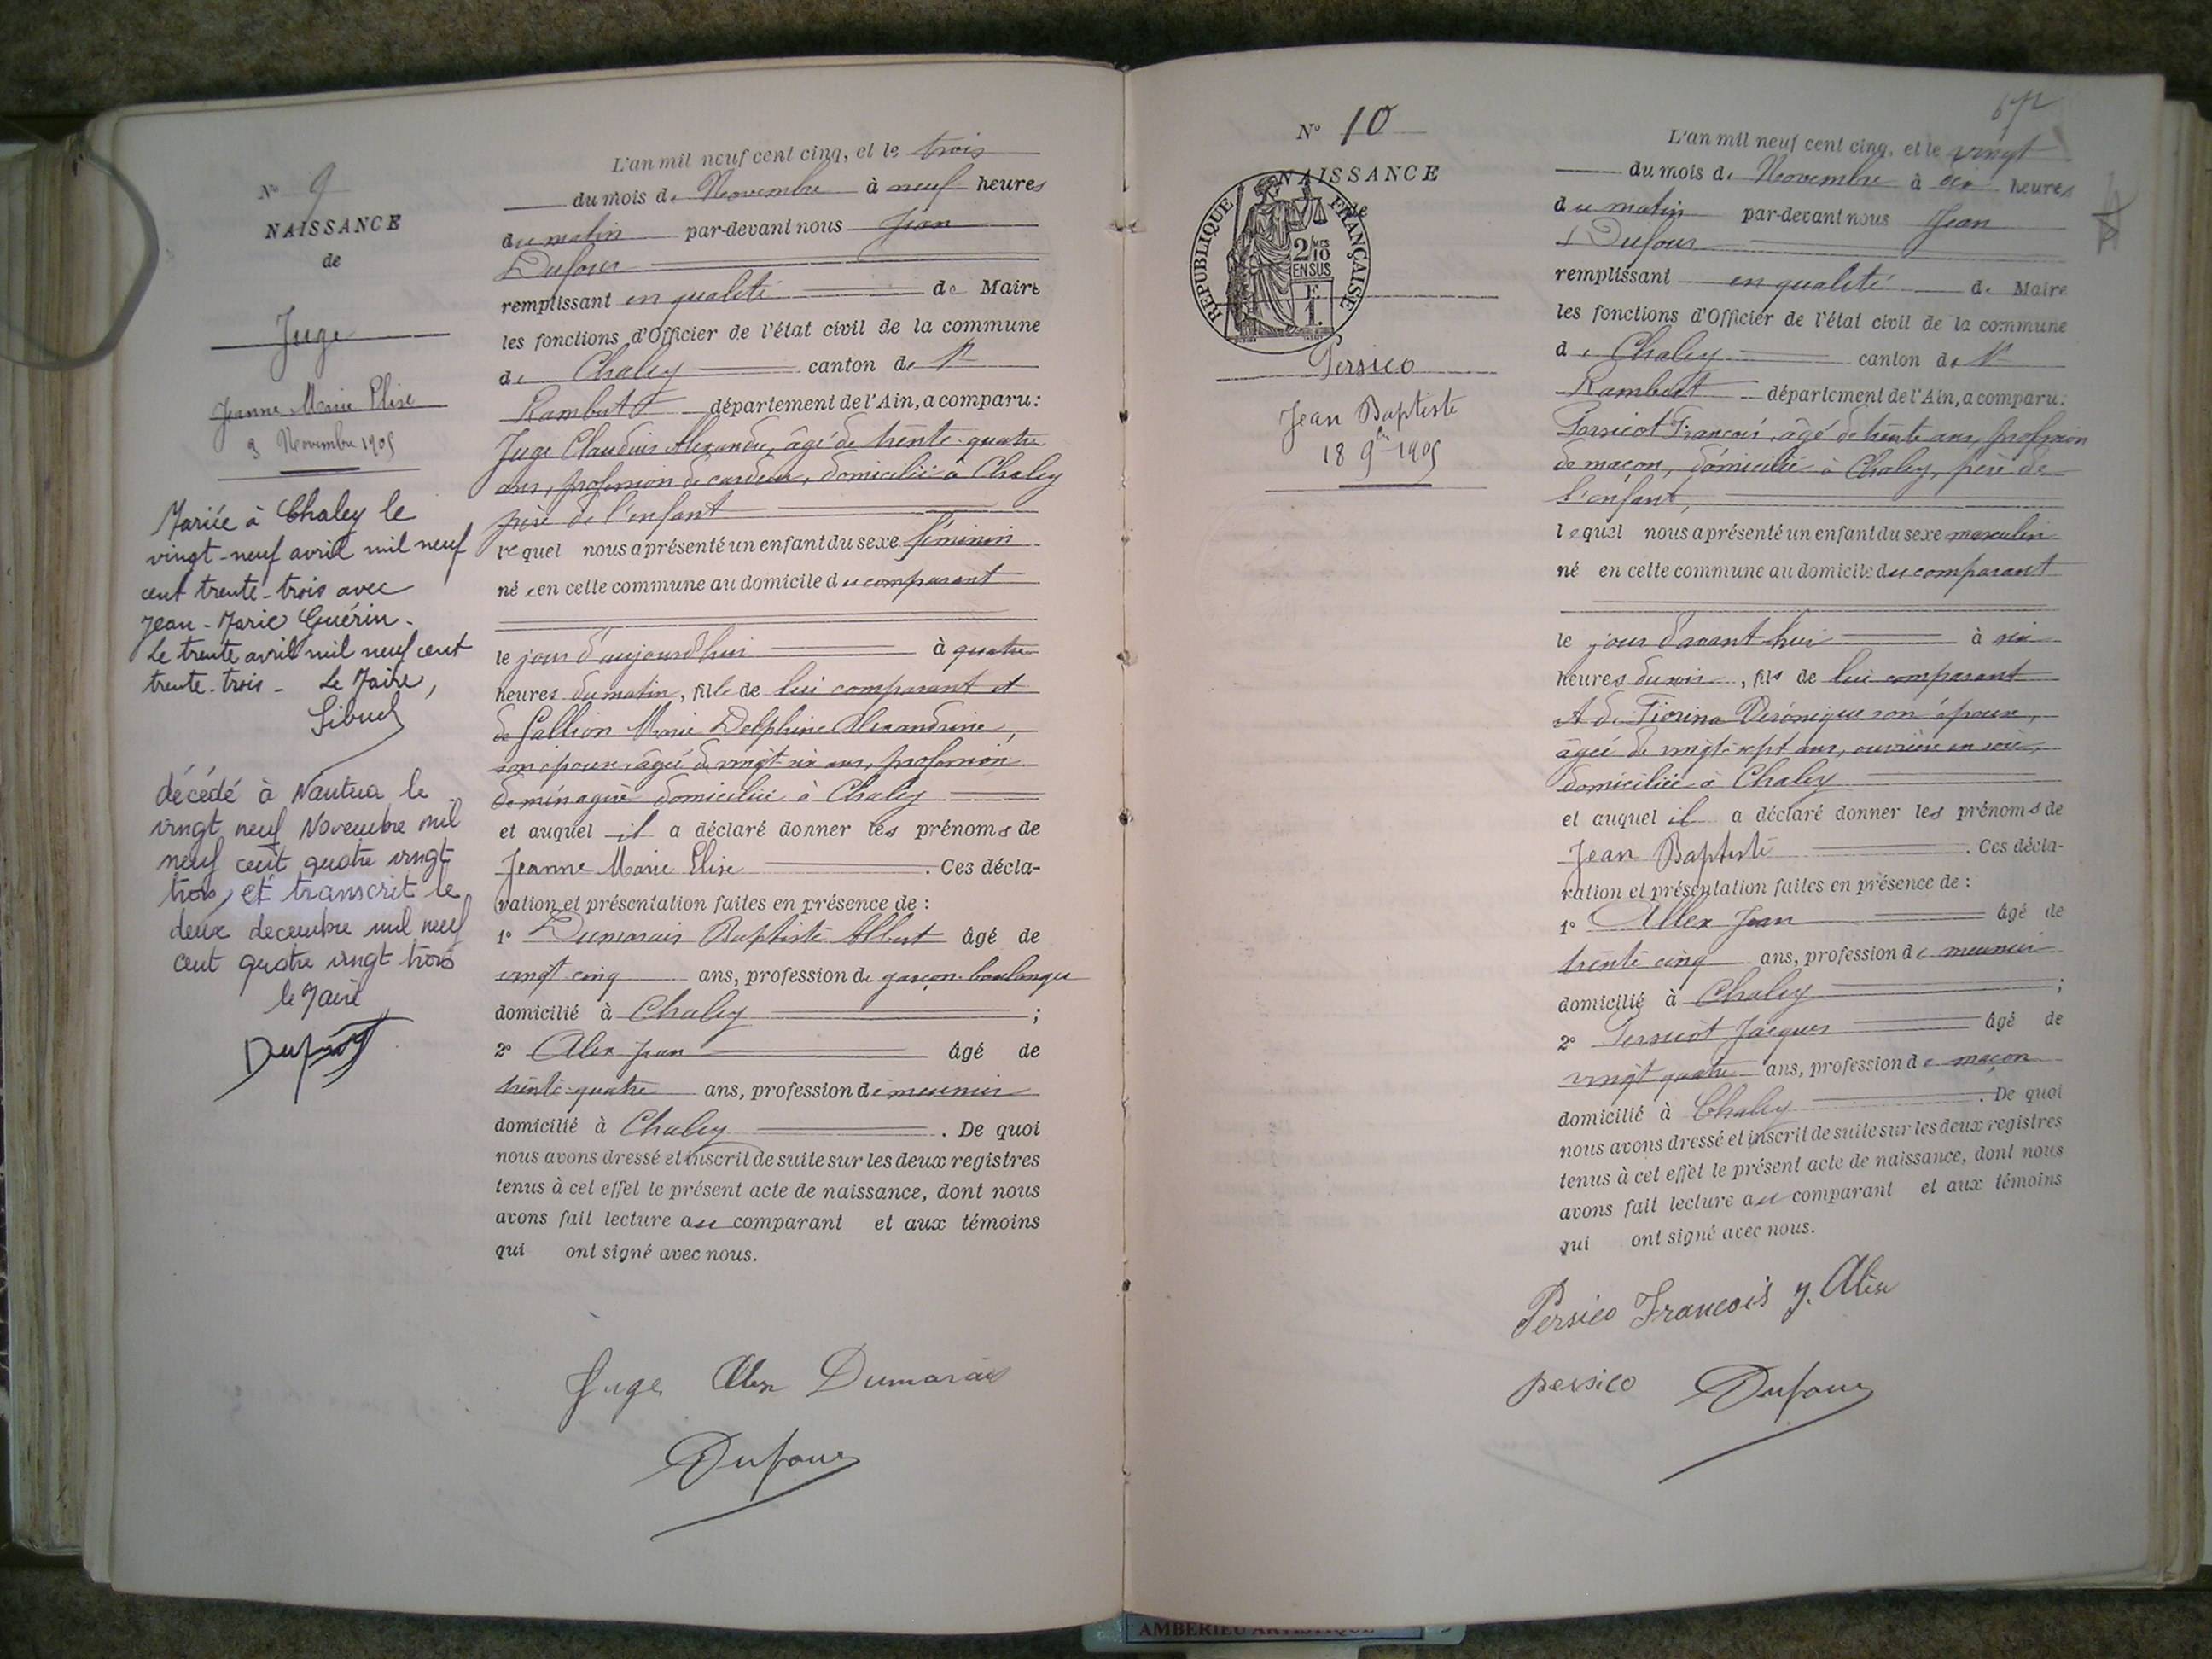 N° 9
NAISSANCE
de
Juge
Jeanne Marie Elise
3 Novembre 1905
Mariée à Chaley le
vingt-neuf avril mil neuf
cent trente-trois avec
Jean-Marie Guérin.
Le trente avril mil neuf cent
trente-trois - Le Maire,
décédé à Nantua le
vingt neuf Novembre mil
neuf cent quatre vingt
trois, et transcrit le
deux decembre mil neuf
cent quatre vingt trois
le Maire
L'an mil neuf cent cinq, et le trois
du mois de Novembre à neuf heures
du matin par-devant nous Jean
Dufour
remplissant en qualité de Maire
les fonctions d'Officier de l'état civil de la commune
de Chaley canton de St
Rambert département de l'Ain, a comparu:
Juge Claudius Alexandre, âgé de trente-quatre
ans, profession de cardeur, domicilié à Chaley
père de l'enfant
lequel nous a présenté un enfant du sexe féminin
née en cette commune au domicile du comparant
le jour d'aujourd'hui à quatre
heures du matin, fille de lui comparant et
de Gallion Marie Delphine Alexandrine,
son épouse, âgée de vingt six ans, profession
de ménagère domiciliée à Chaley
et auquel il a déclaré donner les prénoms de
Jeanne Marie Elise . Ces décla-
ration et présentation faites en présence de :
1° Dumarais Baptiste Albert âgé de
vingt cinq ans, profession de garçon-boulanger
domicilié à Chaley ;
2° Alex Jean âgé de
trente-quatre ans, profession de meunier
domicilié à Chaley . De quoi
nous avons dressé et inscrit de suite sur les deux registres
tenus à cet effet le présent acte de naissance, dont nous
avons fait lecture au comparant et aux témoins
qui ont signé avec nous.
Juge Alex Dumarais
Dufour
N° 10
NAISSANCE
de
RÉPUBLIQUE FRANÇAISE
2/10 MES
EN SUS
F.
1.
Persico
Jean Baptiste
18 9bre 1905
L'an mil neuf cent cinq, et le vingt
du mois de Novembre à dix heures
du matin par-devant nous Jean
Dufour
remplissant en qualité de Maire
les fonctions d'Officier de l'état civil de la commune
de Chaley canton de St
Rambert département de l'Ain, a comparu:
Persicot François, âgé de trente ans, profession
de maçon, domicilié à Chaley, père de
l'enfant,
lequel nous a présenté un enfant du sexe masculin
né en cette commune au domicile du comparant
le jour d'avant-hier à six
heures du soir, fils de lui comparant
et de Fiorina Véronique son épouse,
âgée de vingt-sept ans, ouvrière en soie,
domiciliée à Chaley
et auquel il a déclaré donner les prénoms de
Jean Baptiste . Ces décla-
ration et présentation faites en présence de :
1° Allex Jean âgé de
trente cinq ans, profession de meunier
domicilié à Chaley ;
2° Persicot Jacques âgé de
vingt quatre ans, profession de maçon
domicilié à Chaley . De quoi
nous avons dressé et inscrit de suite sur les deux registres
tenus à cet effet le présent acte de naissance, dont nous
avons fait lecture au comparant et aux témoins
qui ont signé avec nous.
Persico Francois J. Alex
persico Dufour
AMBERIEU ARTISTIQUE